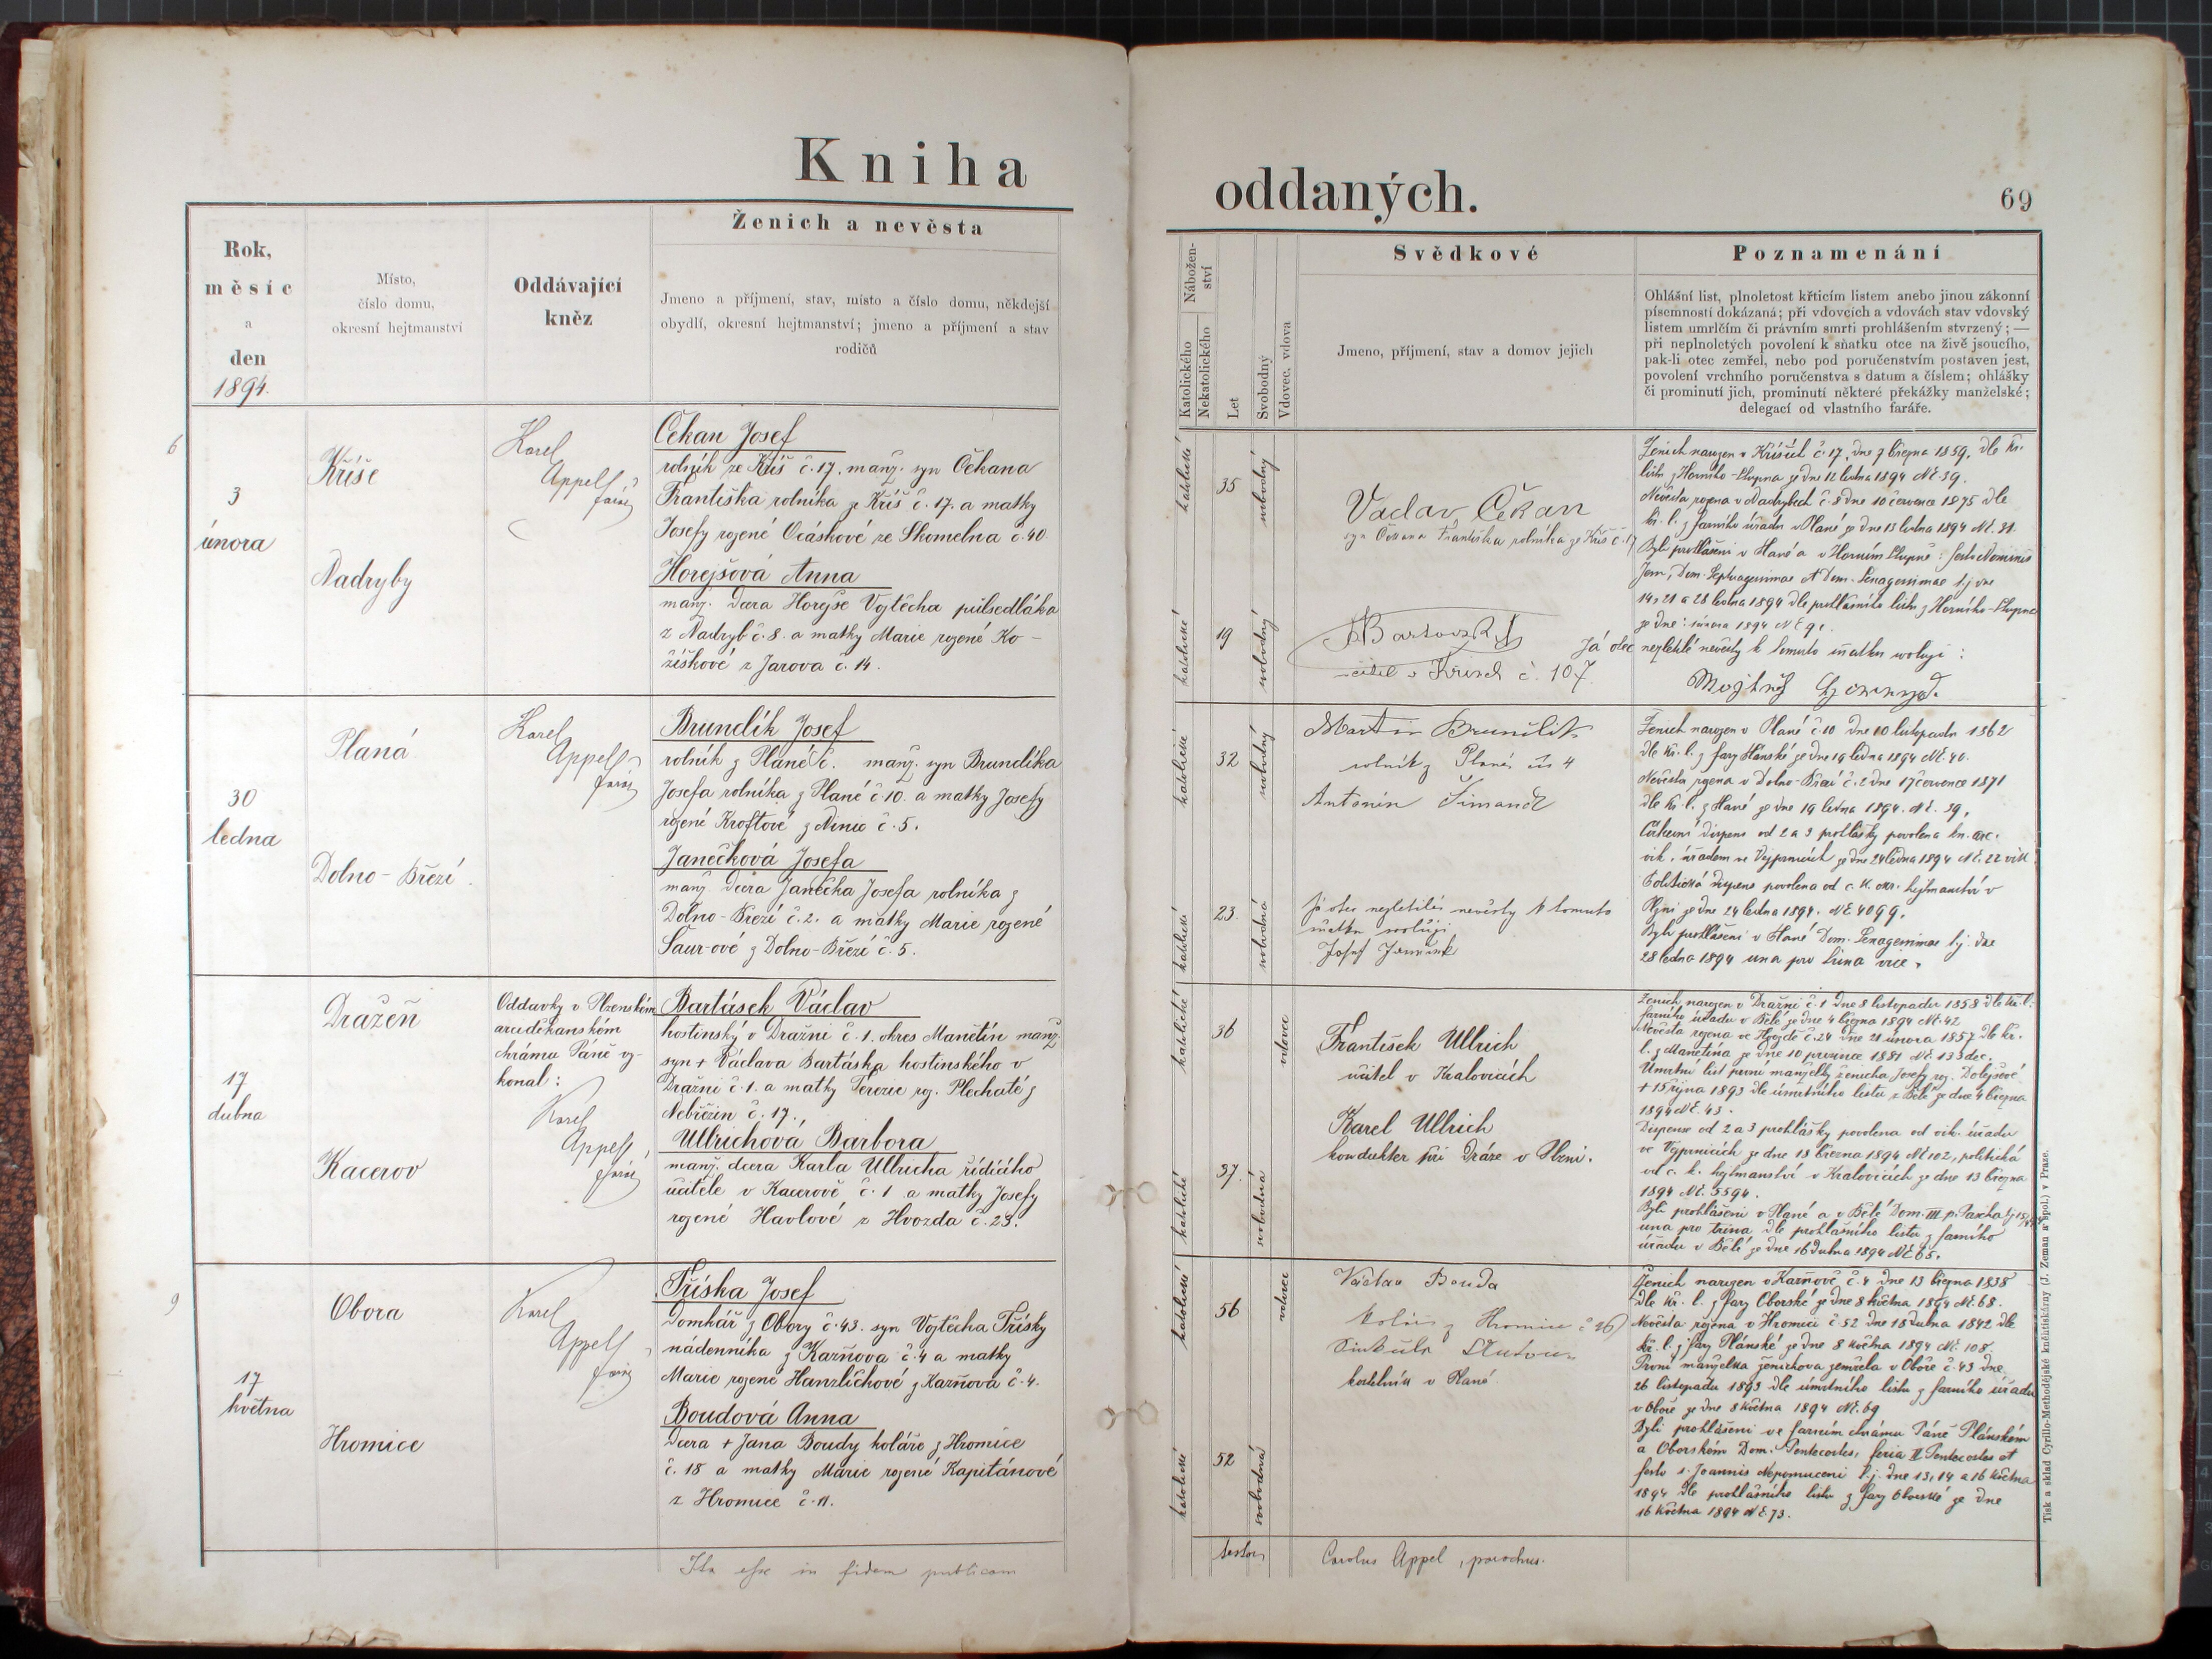 Kniha
Rok,
měsíc
a
den
1894.
Místo,
číslo domu,
okresní hejtmanství
Oddávající
kněz
Ženich a nevěsta
Jmeno a příjmení, stav, místo a číslo domu, někdejší
obydlí, okresní hejtmanství; jmeno a příjmení a stav
rodičů
6
3
února
Kříše
Nadryby
Karel
Appelt
farář
Čekan Josef
rolník ze Kříš č. 17. manž. syn Čekana
Františka rolníka ze Kříš č. 17. a matky
Josefy rozené Ocáskové ze Skomelna č. 40
Horejšová Anna
manž. dcera Horejše Vojtěcha půlsedláka
z Nadryb č. 8. a matky Marie rozené Ko-
žíškové z Jarova č. 14.
30
ledna
Planá
Dolno-Březí
Karel
Appelt
farář
Brundlík Josef
rolník z Plané č. manž. syn Brundlíka
Josefa rolníka z Plané č. 10. a matky Josefy
rozené Kroftové z Ninic č. 5.
Janečková Josefa
manž. dcera Janečka Josefa rolníka z
Dolno-Březí č. 2. a matky Marie rozené
Šaur-ové z Dolno-Březí č. 5.
17
dubna
Dražeň
Kacerov
Oddavky v Plzenském
arciděkanském
chrámu Páně vy-
konal:
Karel
Appelt,
farář
Bartásek Václav
hostinský v Dražni č. 1. okres Manětín manž.
syn + Václava Bartáska hostinského v
Dražni č. 1. a matky Terezie roz. Plechaté z
Nebřezin č. 17.
Ullrichová Barbora
manž. dcera Karla Ullricha řídícího
učitele v Kacerově č. 1 a matky Josefy
rozené Havlové z Hvozda č. 23.
9
17
května
Obora
Hromice
Karel
Appelt
farář
Tříska Josef
domkář z Obory č. 43. syn Vojtěcha Třísky
nádenníka z Kazňova č. 4 a matky
Marie rozené Hanzlíčkové z Kazňova č. 4.
Boudová Anna
dcera + Jana Boudy koláře z Hromice
č. 18 a matky Marie rozené Kapitánové
z Hromice č. 11.
Ita esse in fidem publicam
oddaných.
69
Nábožen-
ství
Katolického
Nekatolického
Let
Svobodný
Vdovec, vdova
Svědkové
Jmeno, příjmení, stav a domov jejich
Poznamenání
Ohlášní list, plnoletost křticím listem anebo jinou zákonní
písemností dokázaná; při vdovcích a vdovách stav vdovský
listem umrlčím či právním smrti prohlášením stvrzený; —
při neplnoletých povolení k sňatku otce na živě jsoucího,
pak-li otec zemřel, nebo pod poručenstvím postaven jest,
povolení vrchního poručenstva s datum a číslem; ohlášky
či prominutí jich, prominutí některé překážky manželské;
delegací od vlastního faráře.
katolické
35
svobodný
Václav Čekan
syn Čekana Františka rolníka ze Kříš č. 17
katolické
19
svobodný
učitel v Kříších č. 107.
Ženich narozen v Kříších č. 17, dne 7 března 1859, dle kř.
listu z Horního-Stupna ze dne 12 ledna 1894 Nč. 39.
Nevěsta rozena v Nadrybech č. 8 dne 10 července 1875 dle
kř. l. z farního úřadu v Plané ze dne 13 ledna 1894 Nč. 31.
Byli prohlášeni v Plané a v Horním Stupně: festo Nominis
Jesu, Dom. Septuagesimae et Dom. Sexagesimae t.j. dne
14, 21 a 28 ledna 1894 dle prohlášního listu z Horního-Stupna
ze dne 1 února 1894 Nč 91.
Já otec nezletilé nevěsty k tomuto sňatku svoluji:
katolické
32
svobodný
Martin Brundlík
rolník z Plané čís 4
Antonín Šimandl
katolické
23.
svobodná
Já otec nezletilé nevěsty k tomuto
sňatku svoluji
Josef Janeček
Ženich narozen v Plané č. 10 dne 10 listopadu 1862
dle kř. l. z fary Plánské ze dne 19 ledna 1894 Nč. 40.
Nevěsta rozena v Dolno-Březí č. 2 dne 17 července 1871
dle kř. l. z Plané ze dne 19 ledna 1894. Nč. 39.
Církevní dispens od 2 a 3 prohlášky povolena kn. arc.
vik. úřadem ve Vejprnicích ze dne 24 ledna 1894 Nč. 22 vik.
Politická dispens povolena od c. k. okr. hejtmanství v
Plzni ze dne 24 ledna 1894. Nč 4099.
Byli prohlášeni v Plané Dom. Sexagesimae t.j. dne
28 ledna 1894 una pro trina vice.
katolické
36
vdovec
František Ullrich
učitel v Kralovicích
Karel Ullrich
kondukter při Dráze v Plzni.
katolické
37.
svobodná
Ženich narozen v Dražni č. 1 dne 8 listopadu 1858 dle kř. l.
farního úřadu v Bělé ze dne 4 března 1894 Nč. 42
Nevěsta rozena ve Hvozdě č. 24 dne 21 února 1857 dle kř.
l. z Manětína ze dne 10 prosince 1881 Nč. 133 dec.
Úmrtní list první manželky ženicha Josefy roz. Dolejšové
+ 15 října 1893 dle úmrtního listu z Bělé ze dne 4 března
1894 Nč. 43.
Dispense od 2 a 3 prohlášky povolena od vik. úřadu
ve Vejprnicích ze dne 13 března 1894 Nč 102, politická
od c. k. hejtmanství v Kralovicích ze dne 13 března
1894 Nč. 5594.
Byli prohlášeni v Plané a v Bělé Dom. III p. Pascha t.j. 15/4
una pro trina dle prohlášního listu z farního
úřadu v Bělé ze dne 16 dubna 1894 Nč 65.
katolické
56
vdovec
Václav Bouda
kolář z Hromice č 16
kostelník v Plané
katolické
52
svobodná
Ženich narozen v Kazňově č. 4 dne 13 března 1838
dle kř. l. z fary Oborské ze dne 8 května 1894 Nč. 68.
Nevěsta rozena v Hromici č 52 dne 18 dubna 1842 dle
kř. l. z fary Plánské ze dne 8 května 1894 Nč. 108.
První manželka ženichova zemřela v Oboře č. 43 dne
26 listopadu 1893 dle úmrtního listu z farního úřadu
v Oboře ze dne 8 května 1894 Nč. 69
Byli prohlášeni ve farním chrámu Páně Plánském
a Oborském Dom. Pentecostes, feria II Pentecostes et
festo s. Joannis Nepomuceni t.j. dne 13, 14 a 16 května
1894 dle prohlášního listu z fary Oborské ze dne
16 května 1894 Nč. 73.
testor
Carolus Appel, parochus.
Tisk a sklad Cyrillo-Methodějské knihtiskárny (J. Zeman a spol.) v Praze.